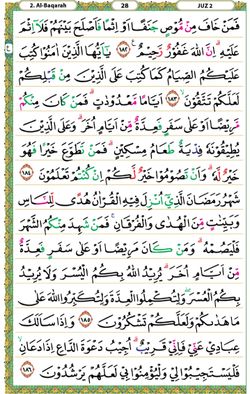 2. Al-Baqarah 28 JUZ 2
فَمَنْ خَافَ مِنْ مُّوْصٍ جَنَفًا اَوْ اِثْمًا فَاَصْلَحَ بَيْنَهُمْ فَلَآ اِثْمَ
عَلَيْهِ ۗ اِنَّ اللّٰهَ غَفُوْرٌ رَّحِيْمٌ ١٨٢ يٰٓاَيُّهَا الَّذِيْنَ اٰمَنُوْا كُتِبَ
عَلَيْكُمُ الصِّيَامُ كَمَا كُتِبَ عَلَى الَّذِيْنَ مِنْ قَبْلِكُمْ
لَعَلَّكُمْ تَتَّقُوْنَ ١٨٣ اَيَّامًا مَّعْدُوْدٰتٍ ۗ فَمَنْ كَانَ مِنْكُمْ
مَّرِيْضًا اَوْ عَلٰى سَفَرٍ فَعِدَّةٌ مِّنْ اَيَّامٍ اُخَرَ ۗ وَعَلَى الَّذِيْنَ
يُطِيْقُوْنَهٗ فِدْيَةٌ طَعَامُ مِسْكِيْنٍ ۗ فَمَنْ تَطَوَّعَ خَيْرًا فَهُوَ
خَيْرٌ لَّهٗ ۗ وَاَنْ تَصُوْمُوْا خَيْرٌ لَّكُمْ اِنْ كُنْتُمْ تَعْلَمُوْنَ ١٨٤
شَهْرُ رَمَضَانَ الَّذِيْٓ اُنْزِلَ فِيْهِ الْقُرْاٰنُ هُدًى لِّلنَّاسِ
وَبَيِّنٰتٍ مِّنَ الْهُدٰى وَالْفُرْقَانِ ۚ فَمَنْ شَهِدَ مِنْكُمُ الشَّهْرَ
فَلْيَصُمْهُ ۗ وَمَنْ كَانَ مَرِيْضًا اَوْ عَلٰى سَفَرٍ فَعِدَّةٌ
مِّنْ اَيَّامٍ اُخَرَ ۗ يُرِيْدُ اللّٰهُ بِكُمُ الْيُسْرَ وَلَا يُرِيْدُ
بِكُمُ الْعُسْرَ ۖ وَلِتُكْمِلُوا الْعِدَّةَ وَلِتُكَبِّرُوا اللّٰهَ عَلٰى
مَا هَدٰىكُمْ وَلَعَلَّكُمْ تَشْكُرُوْنَ ١٨٥ وَاِذَا سَاَلَكَ
عِبَادِيْ عَنِّيْ فَاِنِّيْ قَرِيْبٌ ۗ اُجِيْبُ دَعْوَةَ الدَّاعِ اِذَا دَعَانِ ۙ
فَلْيَسْتَجِيْبُوْا لِيْ وَلْيُؤْمِنُوْا بِيْ لَعَلَّهُمْ يَرْشُدُوْنَ ١٨٦